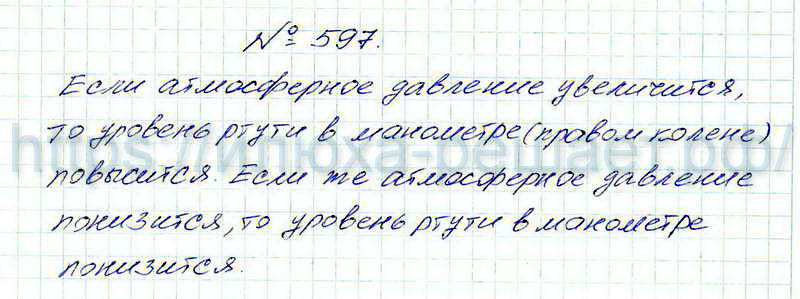 № 597.
Если атмосферное давление увеличится,
то уровень ртути в манометре (правом колене)
повысится. Если же атмосферное давление
понизится, то уровень ртути в манометре
понизится.